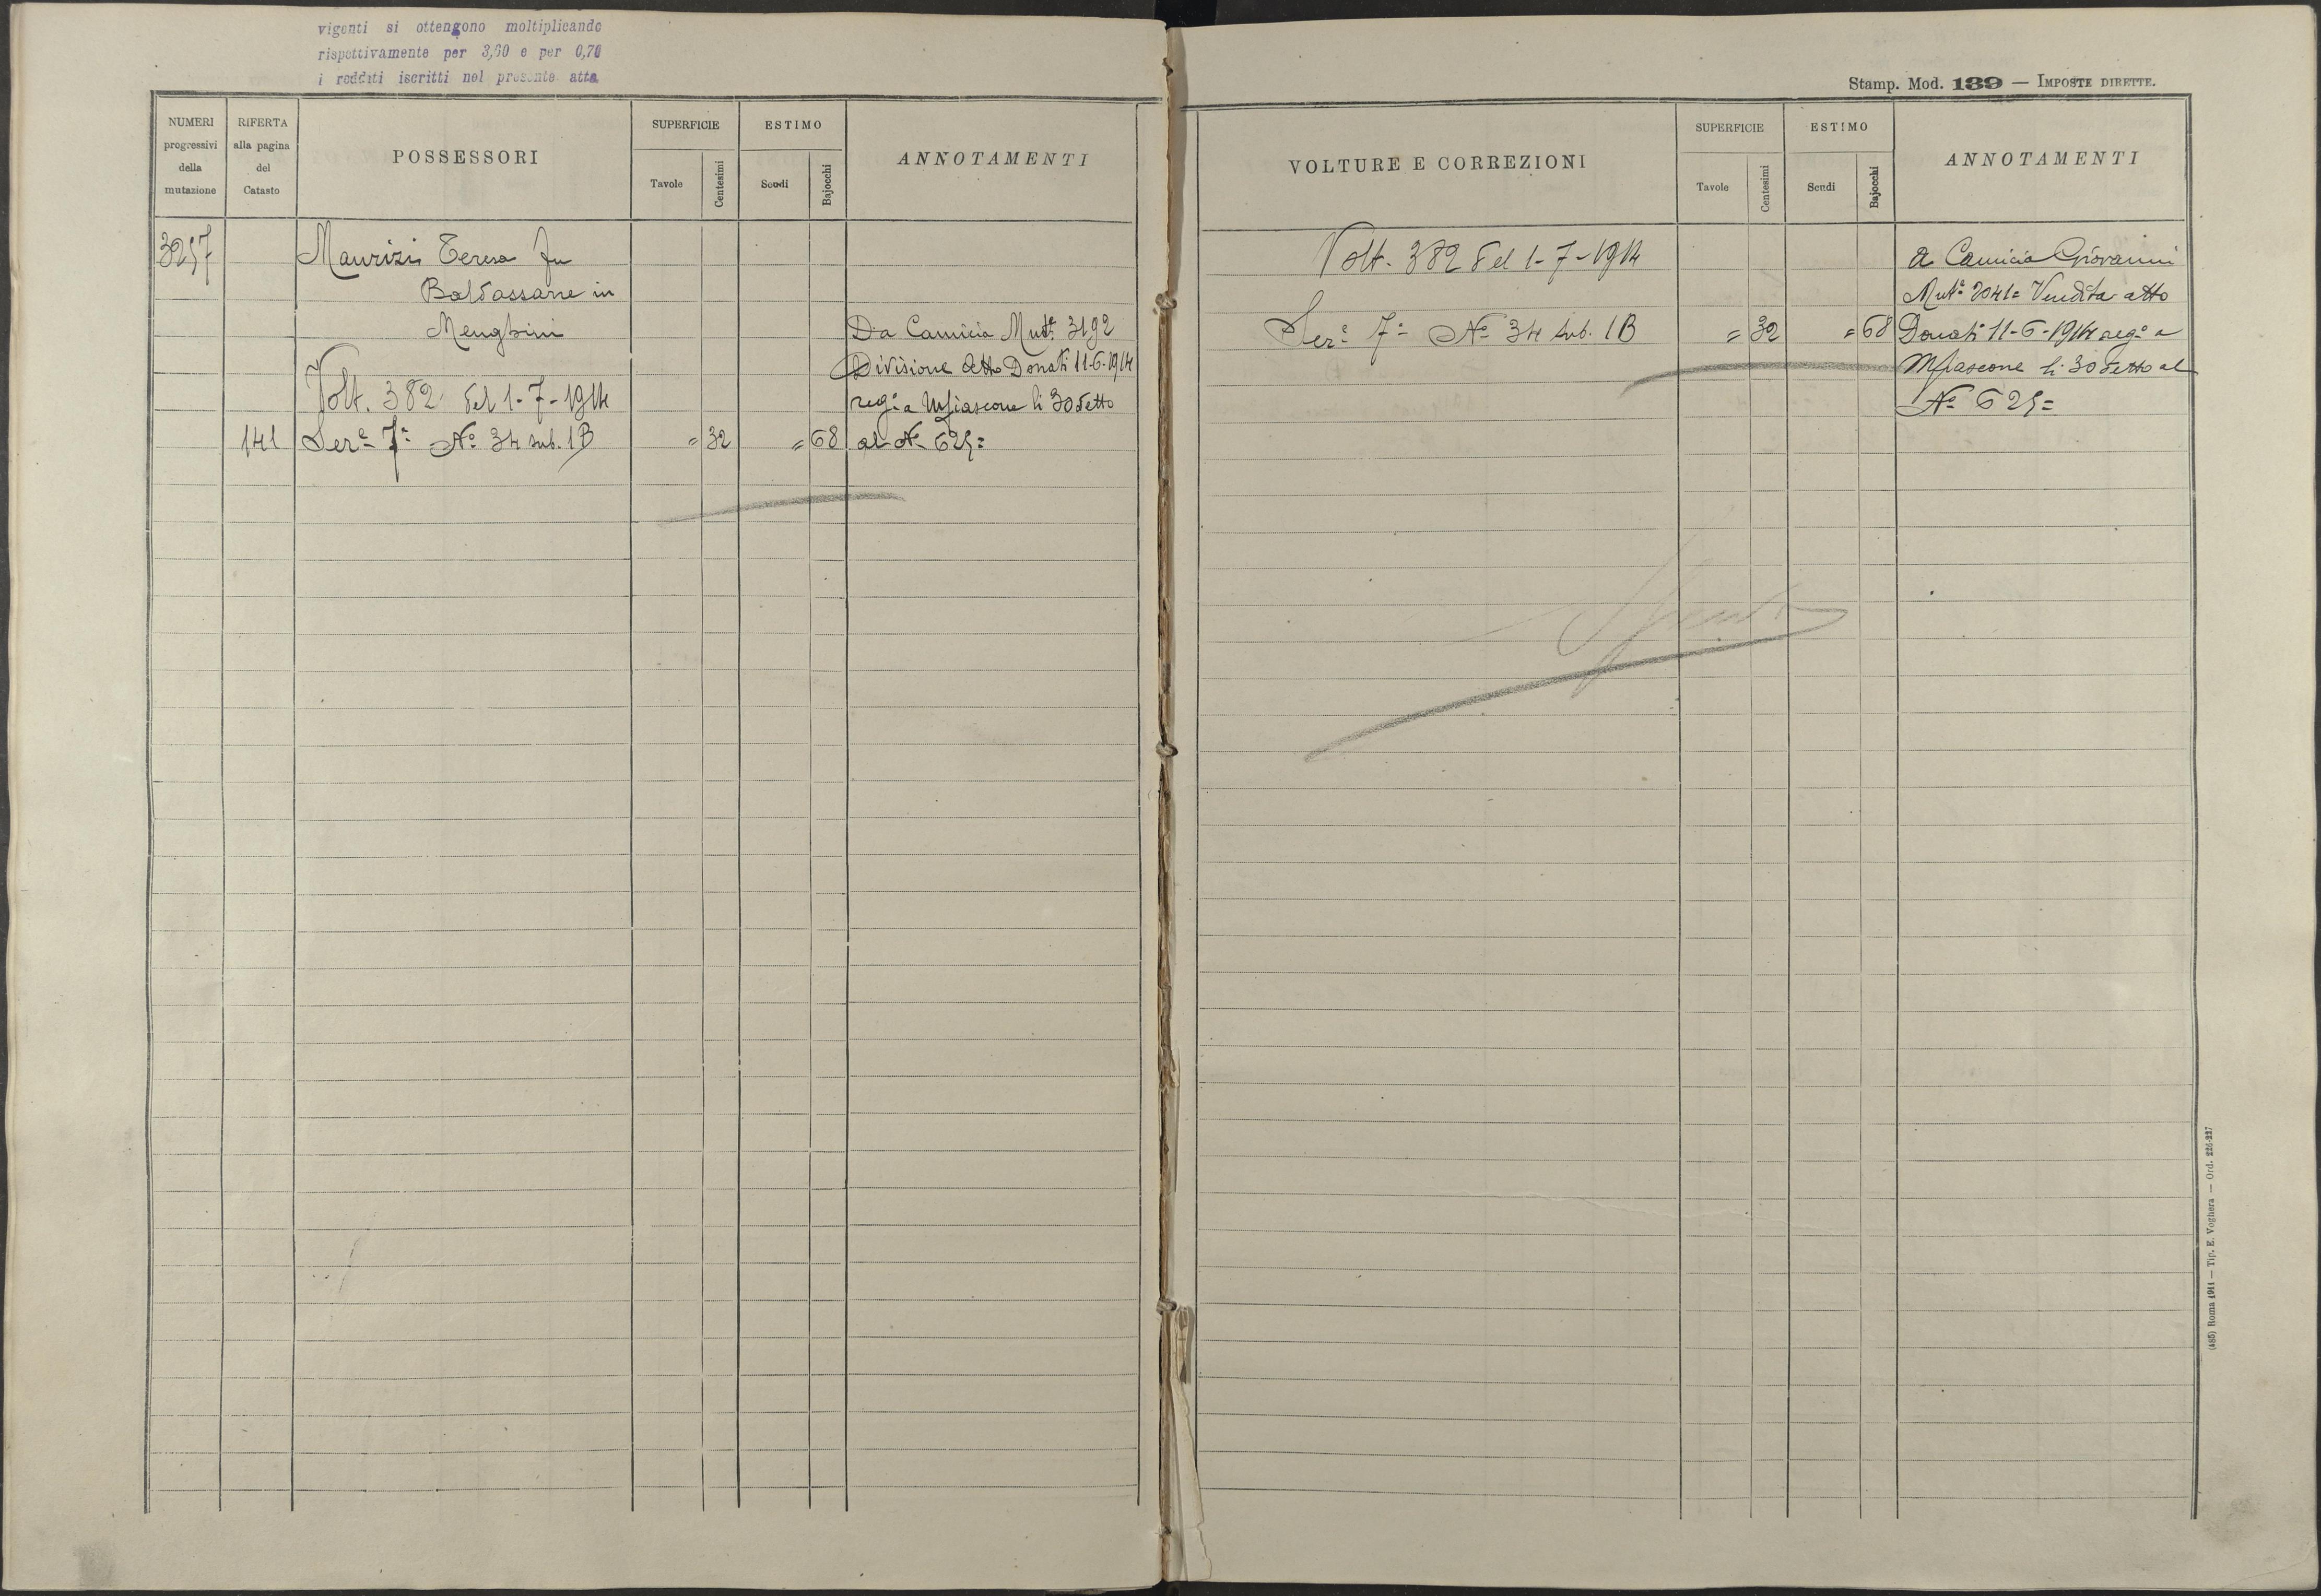 vigenti si ottengono moltiplicando
rispettivamente per 3,60 e per 0,70
i redditi iscritti nel presente atto
NUMERI
progressivi
della
mutazione
RIFERTA
alla pagina
del
Catasto
POSSESSORI
SUPERFICIE
Tavole
Centesimi
ESTIMO
Scudi
Bajocchi
ANNOTAMENTI
3257
Maurizi Teresa fu
Baldassarre in
Menghini
Da Camicia Mutª 3192
Divisione Atto Donati 11-6-1914
Volt. 382 del 1-7-1914
regº a Mfiascone li 30 detto
141 Serª 7ª Nº 34 sub. 1B = 32 = 68 al Nº 625=
Stamp. Mod. 139 — IMPOSTE DIRETTE.
VOLTURE E CORREZIONI
SUPERFICIE
Tavole
Centesimi
ESTIMO
Scudi
Bajocchi
ANNOTAMENTI
Volt. 382 del 1-7-1914
A Camicia Giovanni
Mutª 2041= Vendita atto
Serª 7ª Nº 34 sub. 1B = 32 = 68 Donati 11-6-1914 regº a
Mfiascone li 30 detto al
Nº 625=
(485) Roma 1911 — Tip. E. Voghera — Ord. 226-227